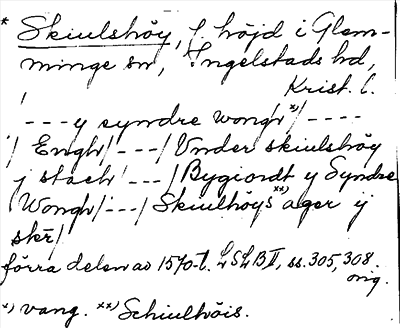 * Skiulshöy, f. höjd i Glem-
minge sn, Ingelstads hd,
Krist. l.
/---y syndre wongh*)/----
/ Engh/---/Vnder skiulshöy
j stæch ---/Bygiordt y Syndre
Wongh/---/Skiulhöys**) ager ij
skr/
förra delen av 1570-t. LSLB II, ss. 305, 308.
orig.
*) vang. **) Schiulhöis.